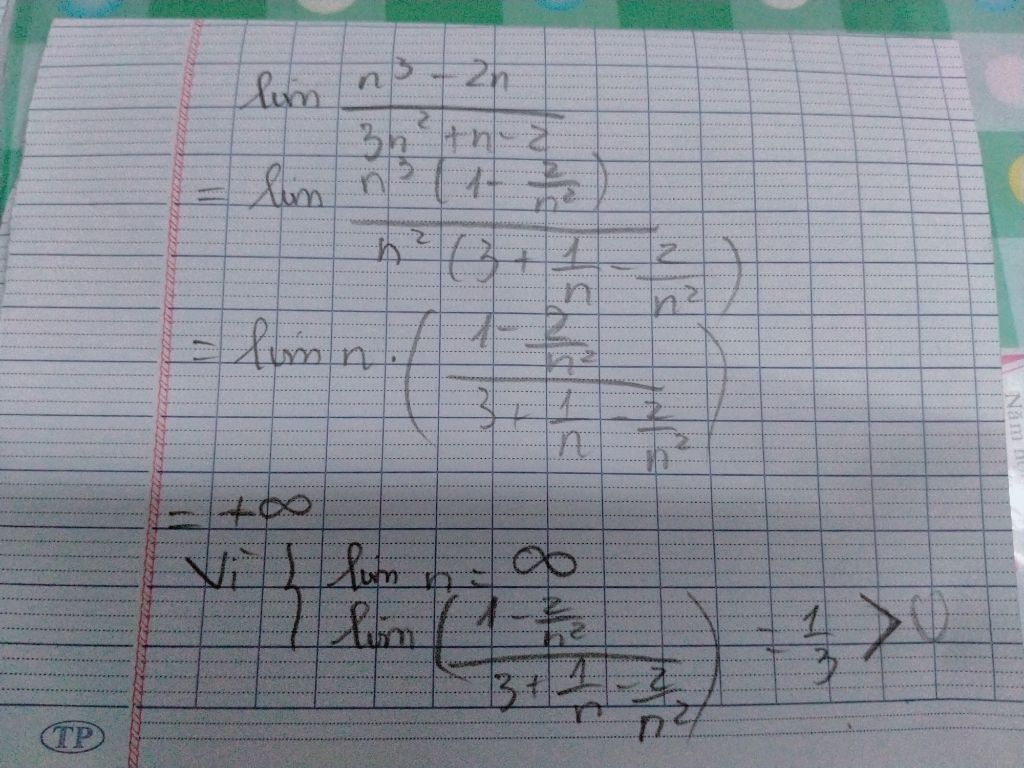 lim \frac{n^3 - 2n}{3n^2 + n - 2}
= lim \frac{n^3 (1 - \frac{2}{n^2})}{n^2 (3 + \frac{1}{n} - \frac{2}{n^2})}
= lim n . (\frac{1 - \frac{2}{n^2}}{3 + \frac{1}{n} - \frac{2}{n^2}})
= +∞
Vì { lim n = ∞
lim (\frac{1 - \frac{2}{n^2}}{3 + \frac{1}{n} - \frac{2}{n^2}}) = \frac{1}{3} > 0
TP
Năm